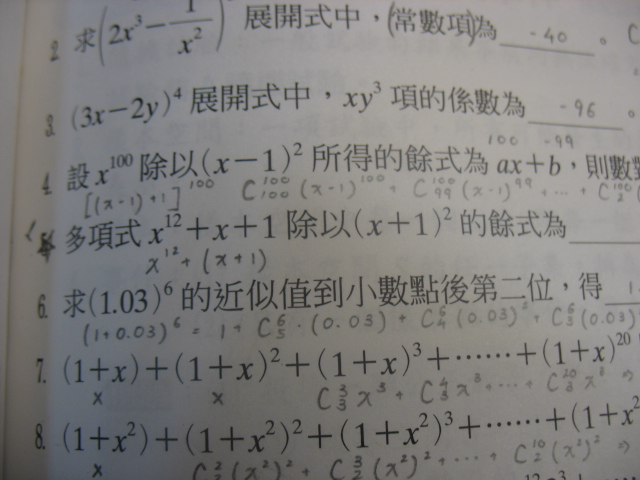 2. 求(2x³ − 1/x²) 展開式中，(常數項)為 -40 。
3. (3x−2y)⁴ 展開式中，xy³ 項的係數為 -96 。
100 -99
4. 設 x¹⁰⁰ 除以(x−1)² 所得的餘式為 ax+b，則數對
[(x-1)+1]¹⁰⁰ C¹⁰⁰₁₀₀(x-1)¹⁰⁰ + C¹⁰⁰₉₉(x-1)⁹⁹ + … + C¹⁰⁰₂(
5. 多項式 x¹²+x+1 除以(x+1)² 的餘式為
x¹² + (x+1)
6. 求(1.03)⁶ 的近似值到小數點後第二位，得 1
(1+0.03)⁶ = 1 + C⁶₅·(0.03) + C⁶₄(0.03)² + C⁶₃(0.03)
7. (1+x)+(1+x)²+(1+x)³+……+(1+x)²⁰
x x C³₃x³ + C⁴₃x³ + … + C²⁰₃x³ ⇒
8. (1+x²)+(1+x²)²+(1+x²)³+……+(1+x²
x C²₂(x²)² + C³₂(x²)² + … + C¹⁰₂(x²)² ⇒